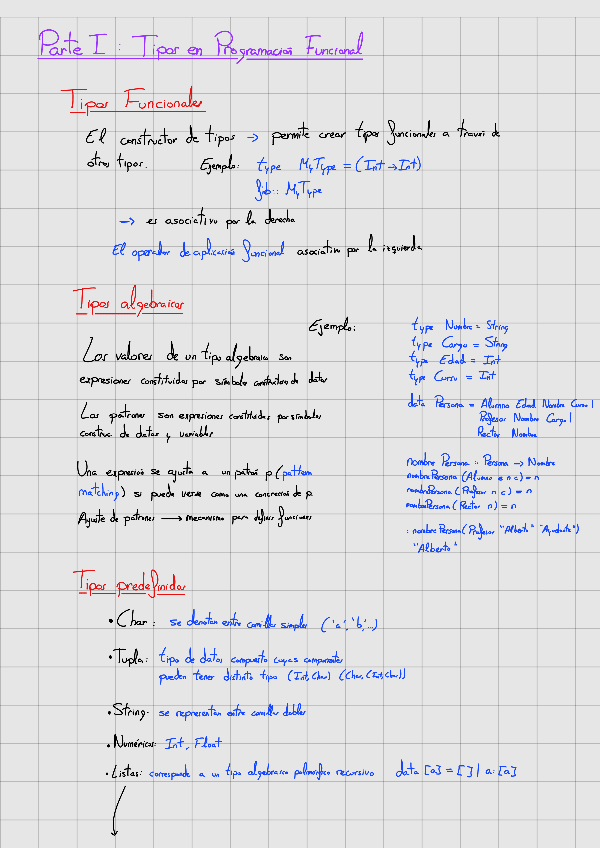 Parte I : Tipos en Programación Funcional
Tipos Funcionales
El constructor de tipos → permite crear tipos funcionales a través de
otros tipos.
Ejemplo: type MyType = (Int → Int)
fib :: MyType
→ es asociativo por la derecha
El operador de aplicación funcional asociativo por la izquierda
Tipos algebraicos
Los valores de un tipo algebraico son
expresiones constituidas por símbolo constructores de datos
Los patrones son expresiones constituidas por símbolos
constru. de datos y variables
Una expresión se ajusta a un patrón p (pattern
matching) si puede verse como una concreción de p
Ajuste de patrones → mecanismo para definir funciones
Ejemplo:
type Nombre = String
type Cargo = String
type Edad = Int
type Curso = Int
data Persona = Alumno Edad Nombre Curso |
Profesor Nombre Cargo |
Rector Nombre
nombre Persona : Persona → Nombre
nombrePersona (Alumno e n c) = n
nombrePersona (Profesor n c) = n
nombrePersona (Rector n) = n
: nombrePersona (Profesor "Alberto" "Ayudante")
"Alberto"
Tipos predefinidos
• Char : se denotan entre comillas simples ('a', 'b', ...)
• Tupla: tipo de datos compuesto cuyas componentes
pueden tener distinto tipo (Int, Char) (Char, (Int, Char))
• String: se representan entre comillas dobles
• Numéricos: Int, Float
• Listas: corresponde a un tipo algebraico polimórfico recursivo data [a] = [] | a : [a]